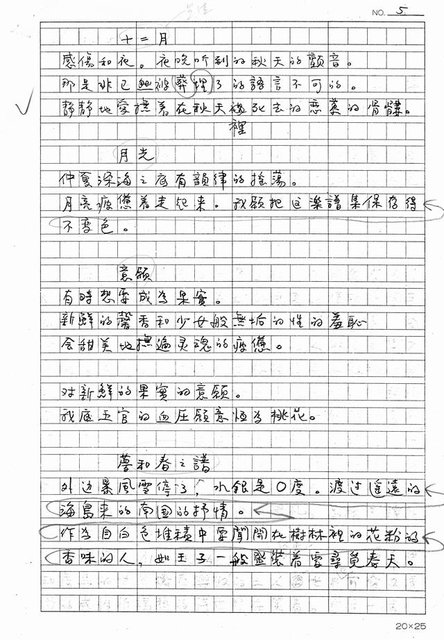 NO. 5
十二月
感傷和夜。夜晚听到的秋天的顫音。
那是非已被葬埋了的語言不可的。
靜靜地安撫着在秋天裡死去的恋慕的骨髏。
裡
月光
仲夏深海之底有韻律的搖蕩。
月亮疲憊着走起來。我願把这樂譜集保存得
不变色。
意願
有時想要成為果實。
新鮮的馨香和少女般無垢的性的羞恥
会甜美地撫遍灵魂的疲憊。
对新鮮的果實的意願。
我底五官的血压願意恆為桃花。
夢和春之譜
外边暴風雪停了，水銀是0度。渡过遙遠的
海島来的南国的抒情。
作為自白色堆積中要聞聞在樹林裡的花粉的
香味的人，如王子一般盛装着要尋覓春天。
20×25